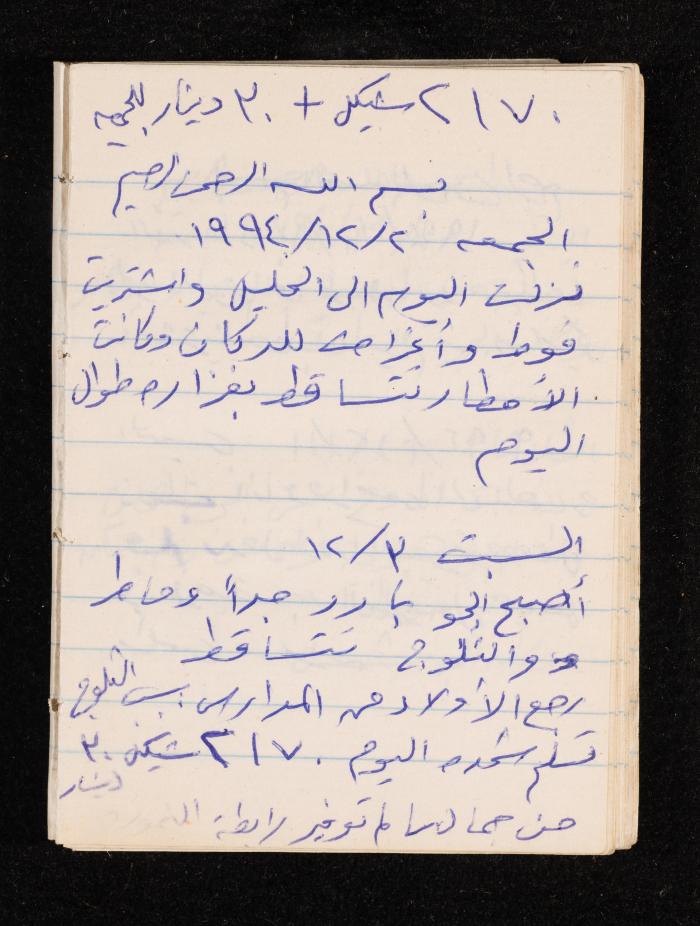 ٢١٧٠ شيكل + ٣٠ دينار للجمعيه
بسم الله الرحمن الرحيم
الجمعه ١٩٩٤/١٢/٢
نزلت اليوم الى الخليل واشتريت
فوط وأغراض للدكان وكانت
الأمطار تتساقط بغزاره طوال
اليوم
السبت ١٢/٣
أصبح الجو بارد جداً وماطر
والثلوج تتساقط
رجع الأولاد من المدارس بسبب الثلوج
تسلم شحده اليوم ٢١٧٠ شيكل ٣٠
دينار
من جمال سالم توفير رابطة